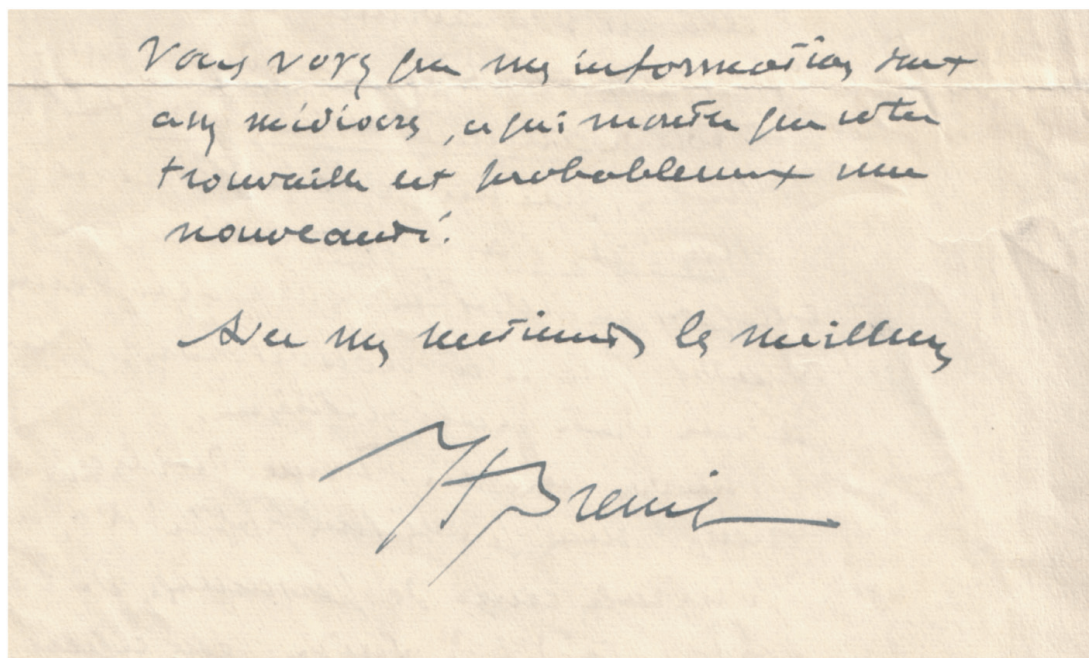 Vous voyez que mes informations sont
assez médiocres, ce qui montre que votre
trouvaille est probablement une
nouveauté.
Avec mes sentiments les meilleurs
HBreuil